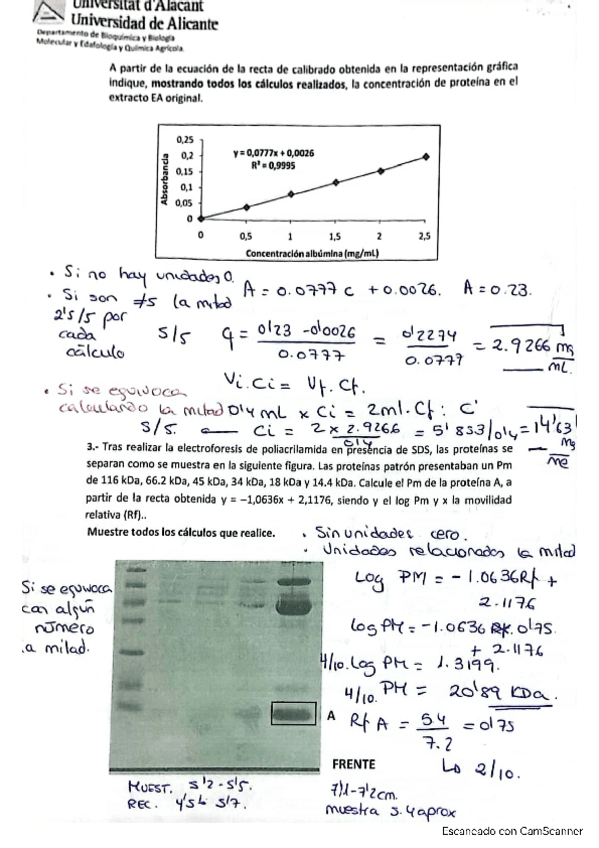 Universitat d'Alacant
Universidad de Alicante
Departamento de Bioquímica y Biología
Molecular y Edafología y Química Agrícola.
A partir de la ecuación de la recta de calibrado obtenida en la representación gráfica
indique, mostrando todos los cálculos realizados, la concentración de proteína en el
extracto EA original.
0,25
0,2
0,15
0,1
0,05
0
Absorbancia
y = 0,0777x + 0,0026
R² = 0,9995
0 0,5 1 1,5 2 2,5
Concentración albúmina (mg/mL)
• Si no hay unidades 0.
• Si son ≠s la mitad
2's/5 por
cada
cálculo
A = 0.0777 c + 0.0026. A = 0.23.
5/5 q = 0'23 - 0'0026 / 0.0777 = 0'2274 / 0.0777 = 2.9266 mg/mL
Vi.Ci = Vf.Cf.
• Si se equivoca
calculando la mitad 0'4 mL x Ci = 2ml. Cf : C'
5/5. Ci = 2 x 2.9266 / 0'4 = 5'833/0'4 = 14'63 mg/ml
3.- Tras realizar la electroforesis de poliacrilamida en presencia de SDS, las proteínas se
separan como se muestra en la siguiente figura. Las proteínas patrón presentaban un Pm
de 116 kDa, 66.2 kDa, 45 kDa, 34 kDa, 18 kDa y 14.4 kDa. Calcule el Pm de la proteína A, a
partir de la recta obtenida y = –1,0636x + 2,1176, siendo y el log Pm y x la movilidad
relativa (Rf)..
Muestre todos los cálculos que realice.
• Sin unidades cero.
• Unidades relacionados la mitad
Si se equivoca
con algún
número
la mitad.
Log PM = - 1.0636Rf +
2.1176
log PM = -1.0636 . 0'75
+ 2.1176
4/10. Log PM = 1.3199.
4/10. PM = 20'89 KDa.
A Rf A = 54 / 7.2 = 0'75
FRENTE
Lo 2/10.
MUEST. 5'2 - 5'5.
REC. 4'5 5'7.
7'1-7'2cm.
muestra 5.4 aprox
Escaneado con CamScanner